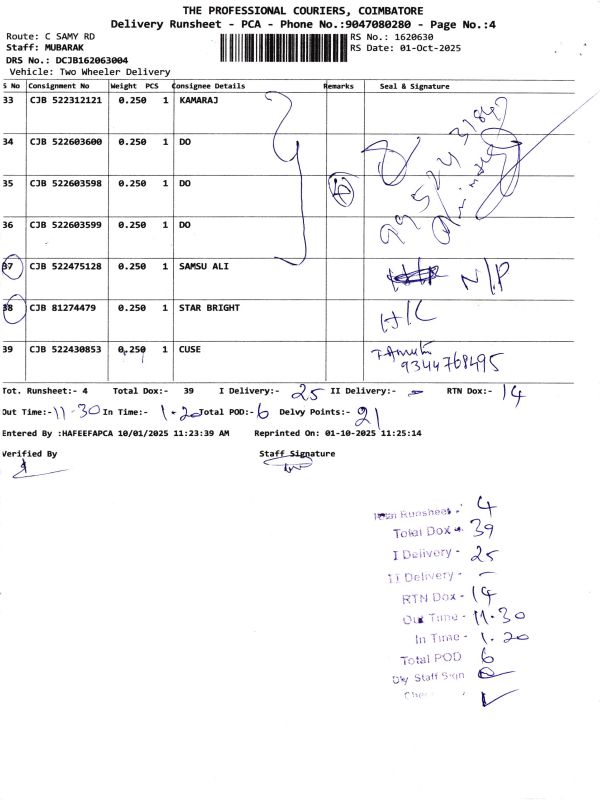 THE PROFESSIONAL COURIERS, COIMBATORE
Delivery Runsheet - PCA - Phone No.:9047080280 - Page No.:4
Route: C SAMY RD RS No.: 1620630
Staff: MUBARAK RS Date: 01-Oct-2025
DRS No.: DCJB162063004
Vehicle: Two Wheeler Delivery
S No Consignment No Weight PCS Consignee Details Remarks Seal & Signature
33 CJB 522312121 0.250 1 KAMARAJ
34 CJB 522603600 0.250 1 DO
35 CJB 522603598 0.250 1 DO
36 CJB 522603599 0.250 1 DO
37 CJB 522475128 0.250 1 SAMSU ALI N/P
38 CJB 81274479 0.250 1 STAR BRIGHT H/C
39 CJB 522430853 0.250 1 CUSE
9344768495
Tot. Runsheet:- 4 Total Dox:- 39 I Delivery:- 25 II Delivery:- - RTN Dox:- 14
Out Time:- 11-30 In Time:- 1-20 Total POD:- 6 Delvy Points:- 21
Entered By :HAFEEFAPCA 10/01/2025 11:23:39 AM Reprinted On: 01-10-2025 11:25:14
Verified By Staff Signature
Total Runsheet - 4
Total Dox - 39
I Delivery - 25
II Delivery - -
RTN Dox - 14
Out Time - 11.30
In Time - 1.20
Total POD 6
Dly Staff Sign